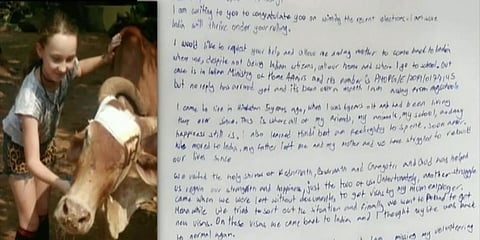 I am writing to you to congratulate you on winning the recent elections. I am sure
India will thrive under your ruling.
I would like to request your help and allow me and my mother to come back to India
where we, despite not being Indian citizens, call our home and where I go to school. Our
case is in Indian Ministry of Home Affairs and its number is
but no reply has arrived yet and its been over month I am away from my
I came to live in 5 years ago, when I was 6 years old and had been living
there ever since. This is where all my friends, my animals, my school, and my
happiness still is. I also learned Hindi but am
we moved to India, my father left me and my mother and we have struggled to rebuild
our lives since
We visited the holy shrines of Kedarnath, Badrinath and Gangotri and God has helped
us regain our strength and happiness, just the two of us. Unfortunately, another struggle
came when we were left without documents, to get visas by my mum employer.
Meanwhile we tried to sort out the situation and finally we went to to get
new visas. On these visas we came back to India and I thought my life was back
to normal again.
I am missing my volunteering